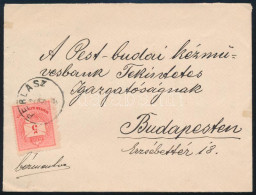 A Pest-budai kézmű-
vesbank Tekintetes
Igazgatóságnak
Budapesten
Erzsébettér 18.
PERLASZ
5
bérmentve